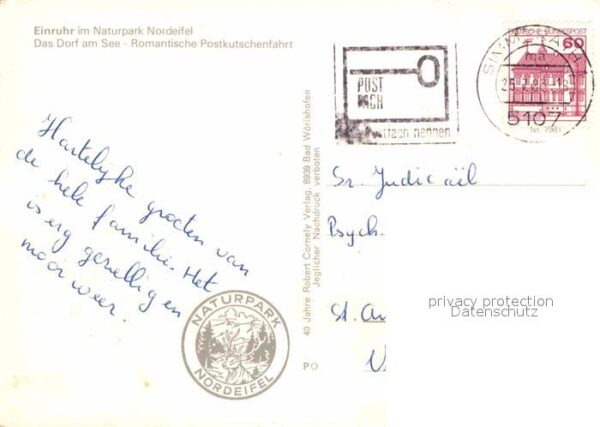 Einruhr im Naturpark Nordeifel
Das Dorf am See - Romantische Postkutschenfahrt
Hartelijke groeten van
de hele familie. Het
is erg gezellig en
mooi weer.
NATURPARK
NORDEIFEL
40 Jahre Robert Cornely Verlag, 8939 Bad Wörishofen
Jeglicher Nachdruck verboten
PO
POST
FACH
nennen
DEUTSCHE BUNDESPOST
60
5107
Nr. 7981
Sr. Judicaël
Psych.
St.
privacy protection
Datenschutz